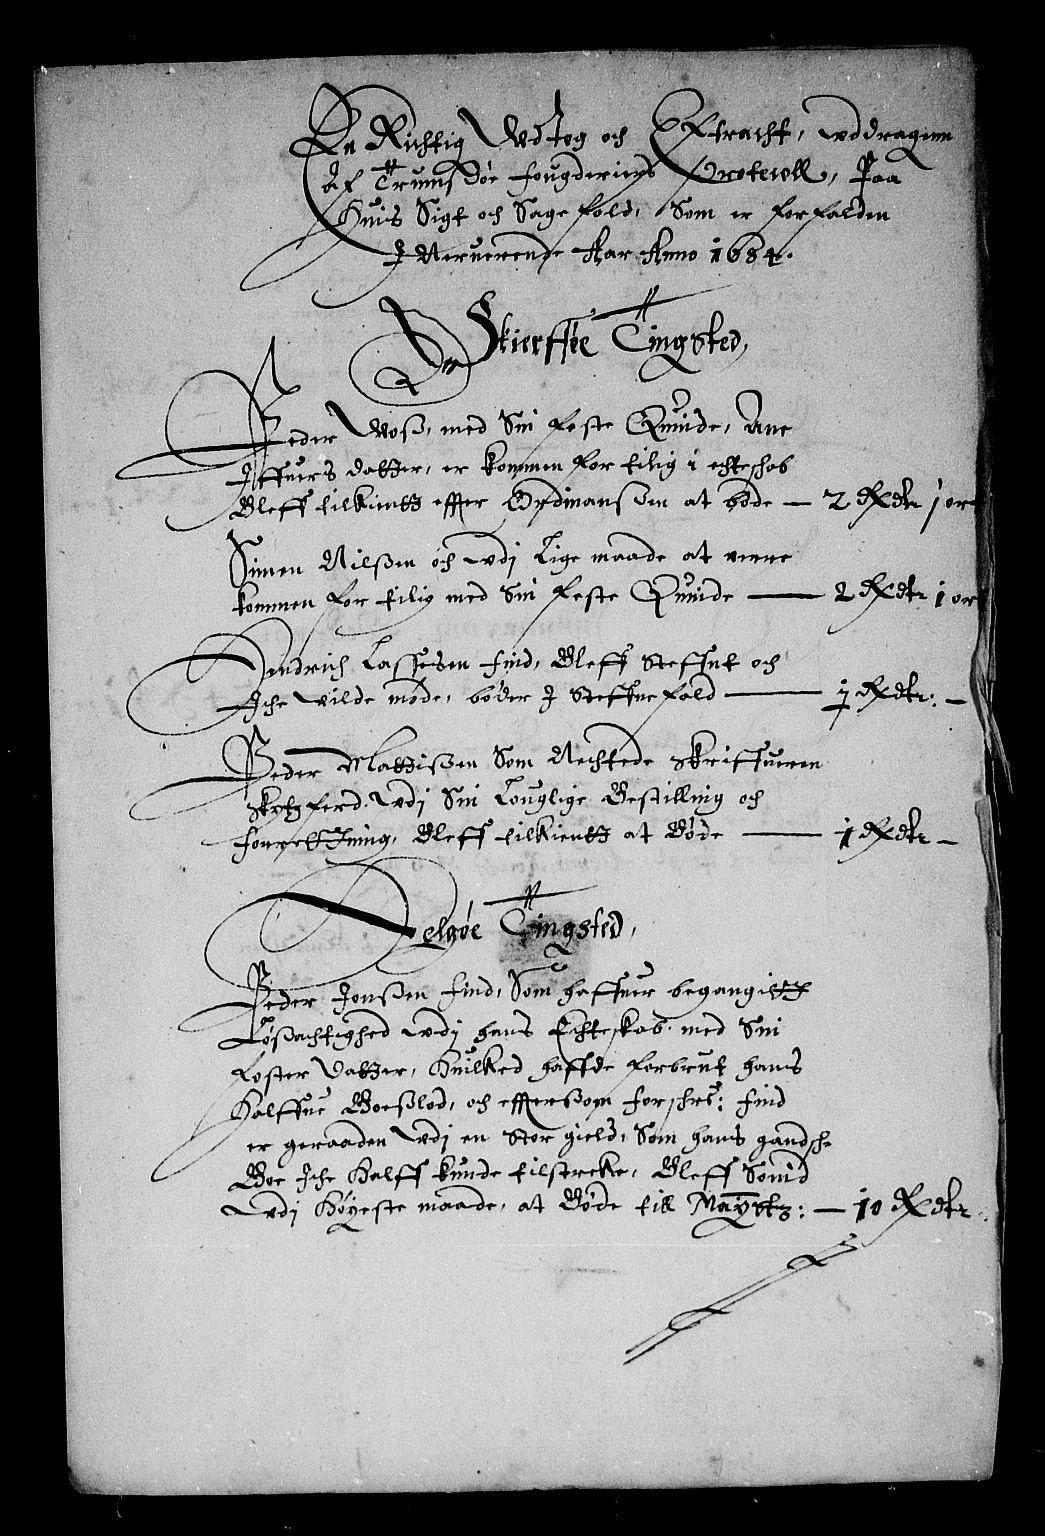 En Richtig Wdtog och Extracht, wddragenn
Af Trums Øe fougderiets Protocoll, Paa
Huis Sigt och Sage fald, Som er forfalden
I Nerverende Aar Anno 1684.
Skierfføe Tingsted,
Peder Woß, med Sin feste Quinde, Ane
Iffuers datter, er kommen for tilig i echteschab
Bleff tilkientt effter Ordinanßen at bøde — 2 Rxdlr 1 ort
Simen Nilßen och wdj Lige maade at were
kommen for tilig med Sin feste Quinde — 2 Rxdlr 1 ort
Hendrich Lassesen find, Bleff Steffnt och
Iche wilde møde, bøder I Steffne fald — ½ Rxdlr: —
Peder Mattißen Som Nechtede Skriffueren
Skytzferd wdj Sin Louglige Bestilling och
forrettning, Bleff tilkientt at Bøde — 1 Rxdlr —
Helgøe Tingsted,
Peder Jonßen find, Som haffuer begangitt
Løßachtighed wdj hans Echteskab med Sin
foster datter, Huilked haffde forbrut hans
Halffue Boeßlod, och effterßom forschr: find
er geraaden wdj en Stor gield, Som hans gandsche
Boe Iche Halff kunde tilstrecke, Bleff Sönid
wdj Høyeste maade, at Bøde till Maystz: — 10 Rxdlr